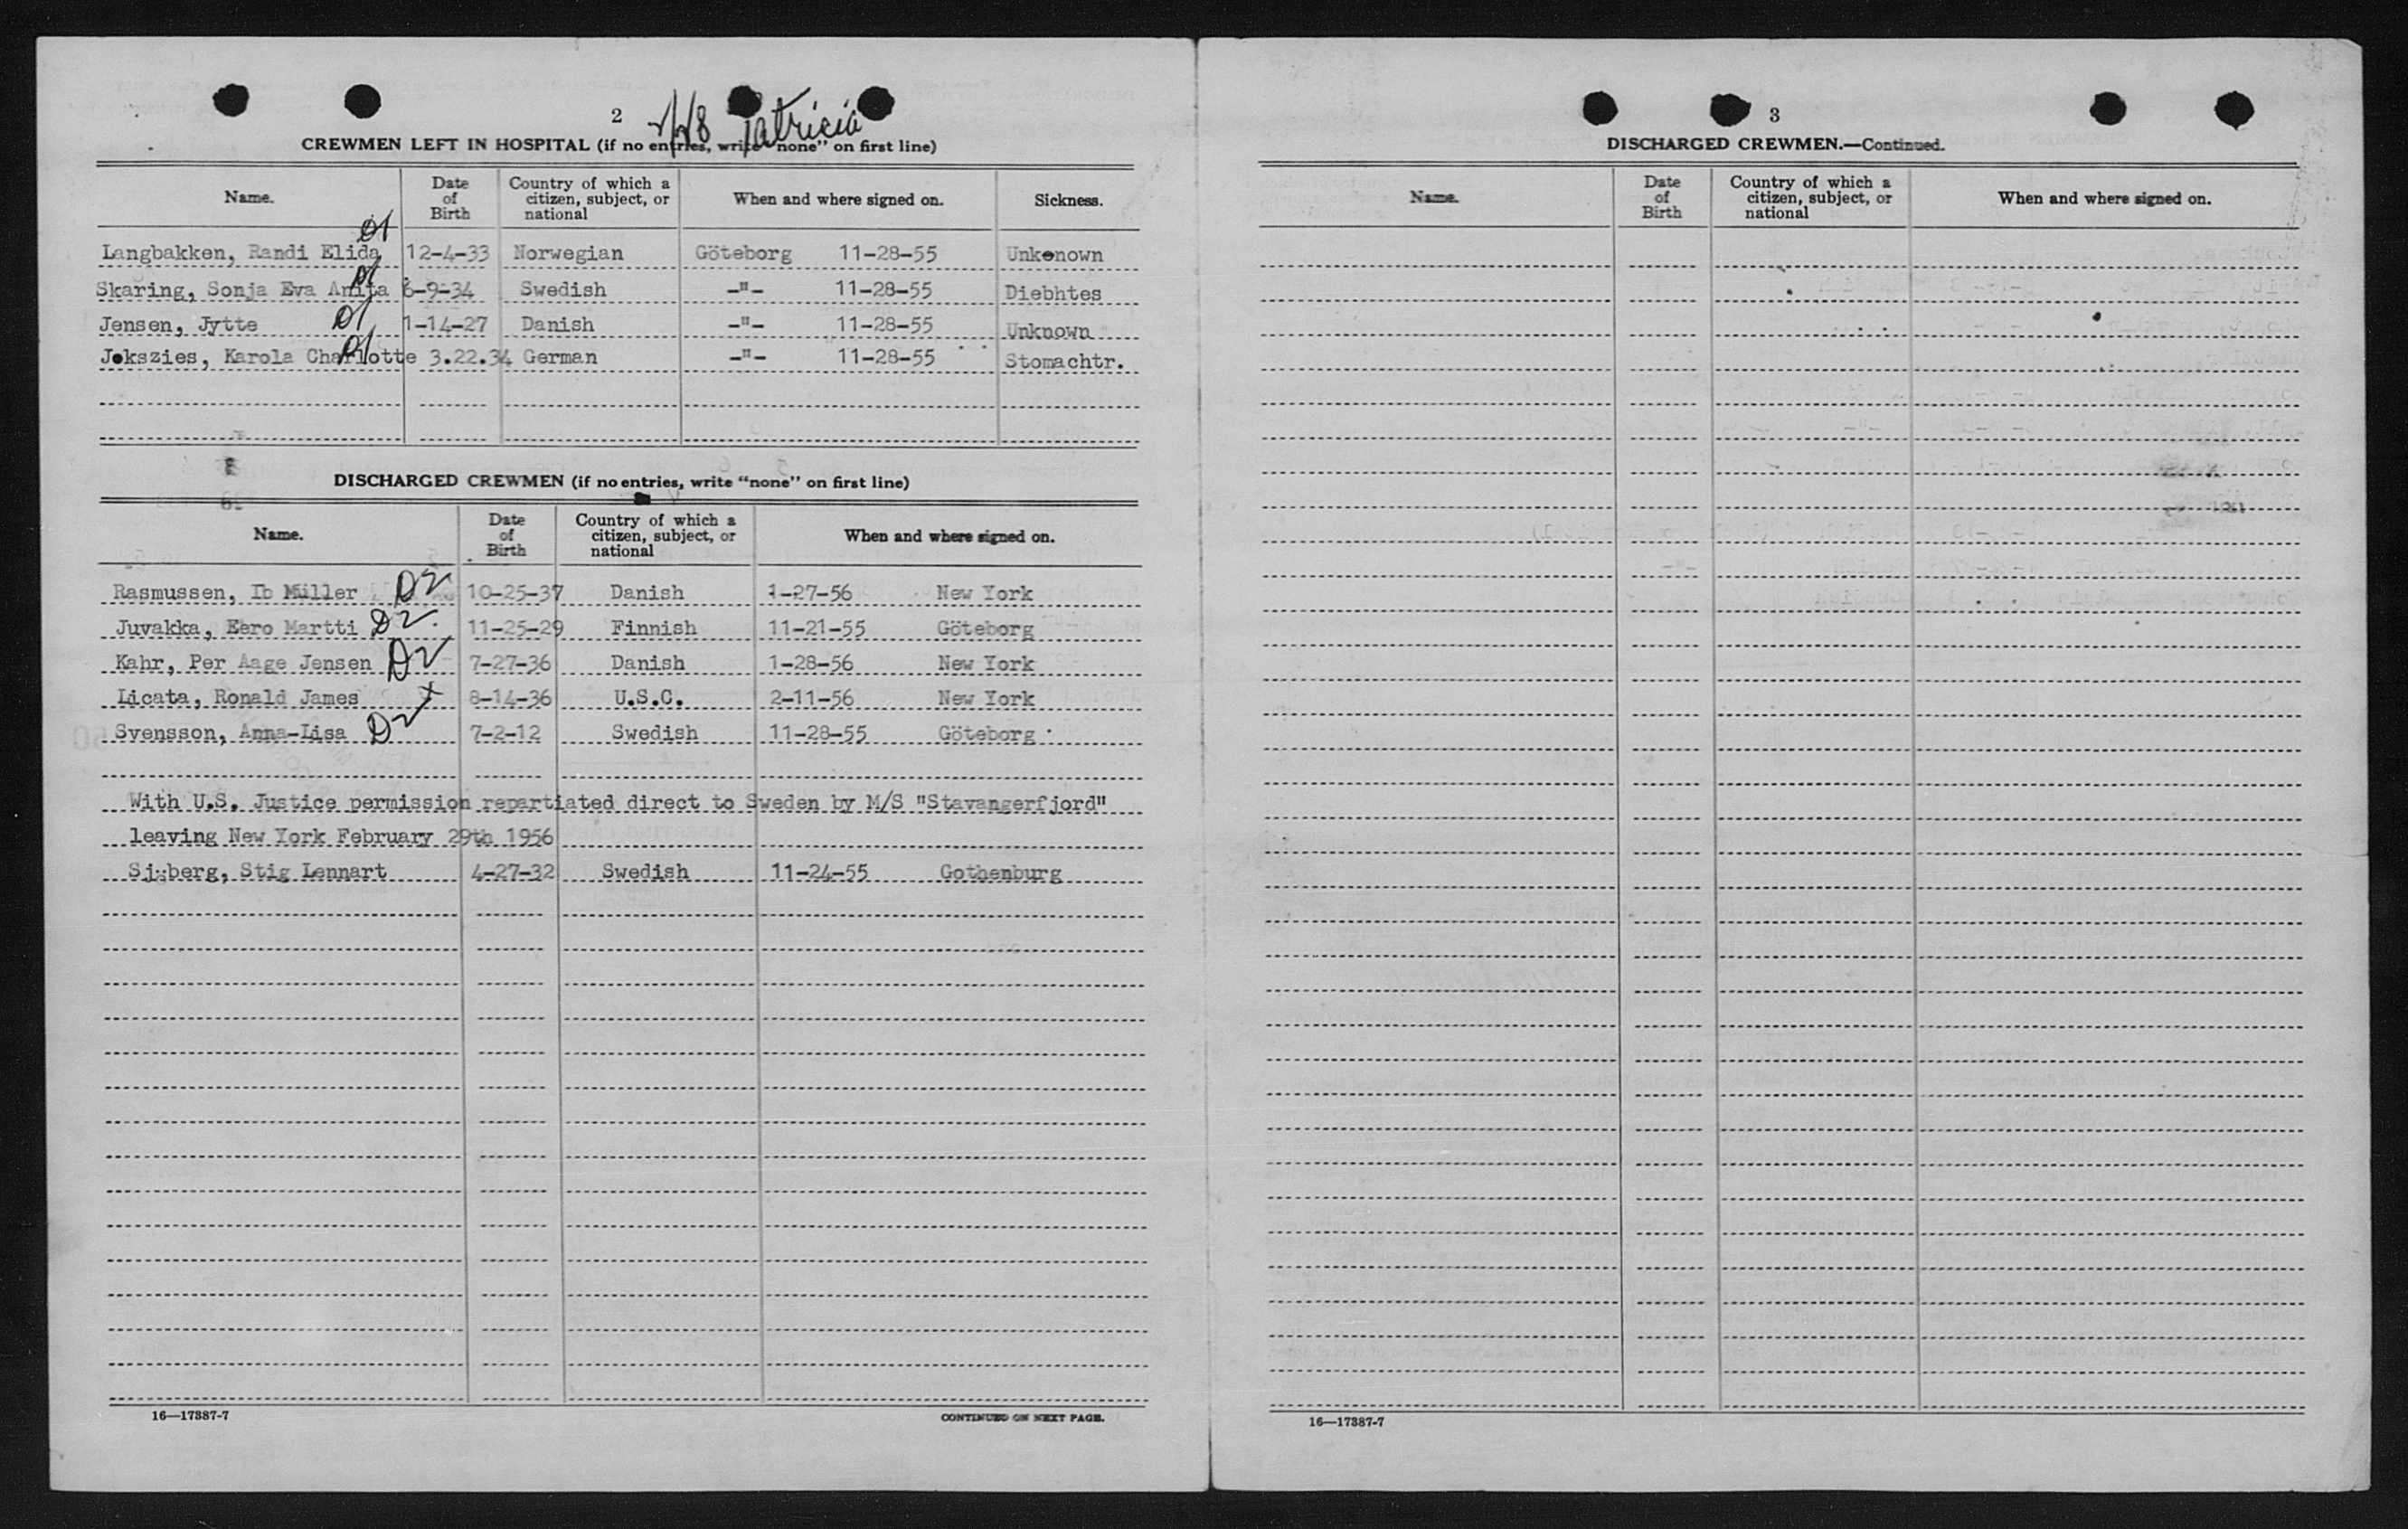 2
2/28 Patricia
CREWMEN LEFT IN HOSPITAL (if no entries, write "none" on first line)
Name. Date of Birth Country of which a citizen, subject, or national When and where signed on. Sickness.
Langbakken, Randi Elida D1 12-4-33 Norwegian Göteborg 11-28-55 Unkenown
Skaring, Sonja Eva Anita D1 6-9-34 Swedish -"- 11-28-55 Diebhtes
Jensen, Jytte D1 1-14-27 Danish -"- 11-28-55 Unknown
Jokszies, Karola Charlotte D1 3.22.34 German -"- 11-28-55 Stomachtr.
DISCHARGED CREWMEN (if no entries, write "none" on first line)
Name. Date of Birth Country of which a citizen, subject, or national When and where signed on.
Rasmussen, Ib Müller D2 10-25-37 Danish 1-27-56 New York
Juvakka, Eero Martti D2. 11-25-29 Finnish 11-21-55 Göteborg
Kahr, Per Aage Jensen D2 7-27-36 Danish 1-28-56 New York
Licata, Ronald James x 8-14-36 U.S.C. 2-11-56 New York
Svensson, Anna-Lisa D2 7-2-12 Swedish 11-28-55 Göteborg
With U.S. Justice permission repartiated direct to Sweden by M/S "Stavangerfjord"
leaving New York February 29th 1956
Sjöberg, Stig Lennart 4-27-32 Swedish 11-24-55 Gothenburg
16—17387-7 CONTINUED ON NEXT PAGE.
3
DISCHARGED CREWMEN.—Continued.
Name. Date of Birth Country of which a citizen, subject, or national When and where signed on.
16—17387-7